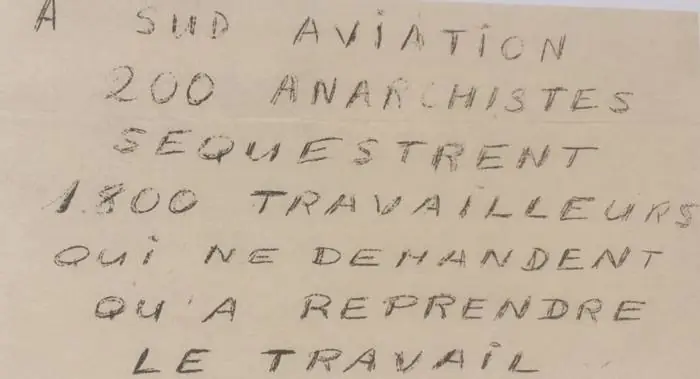 A SUD AVIATION
200 ANARCHISTES
SEQUESTRENT
1.800 TRAVAILLEURS
QUI NE DEMANDENT
QU'A REPRENDRE
LE TRAVAIL